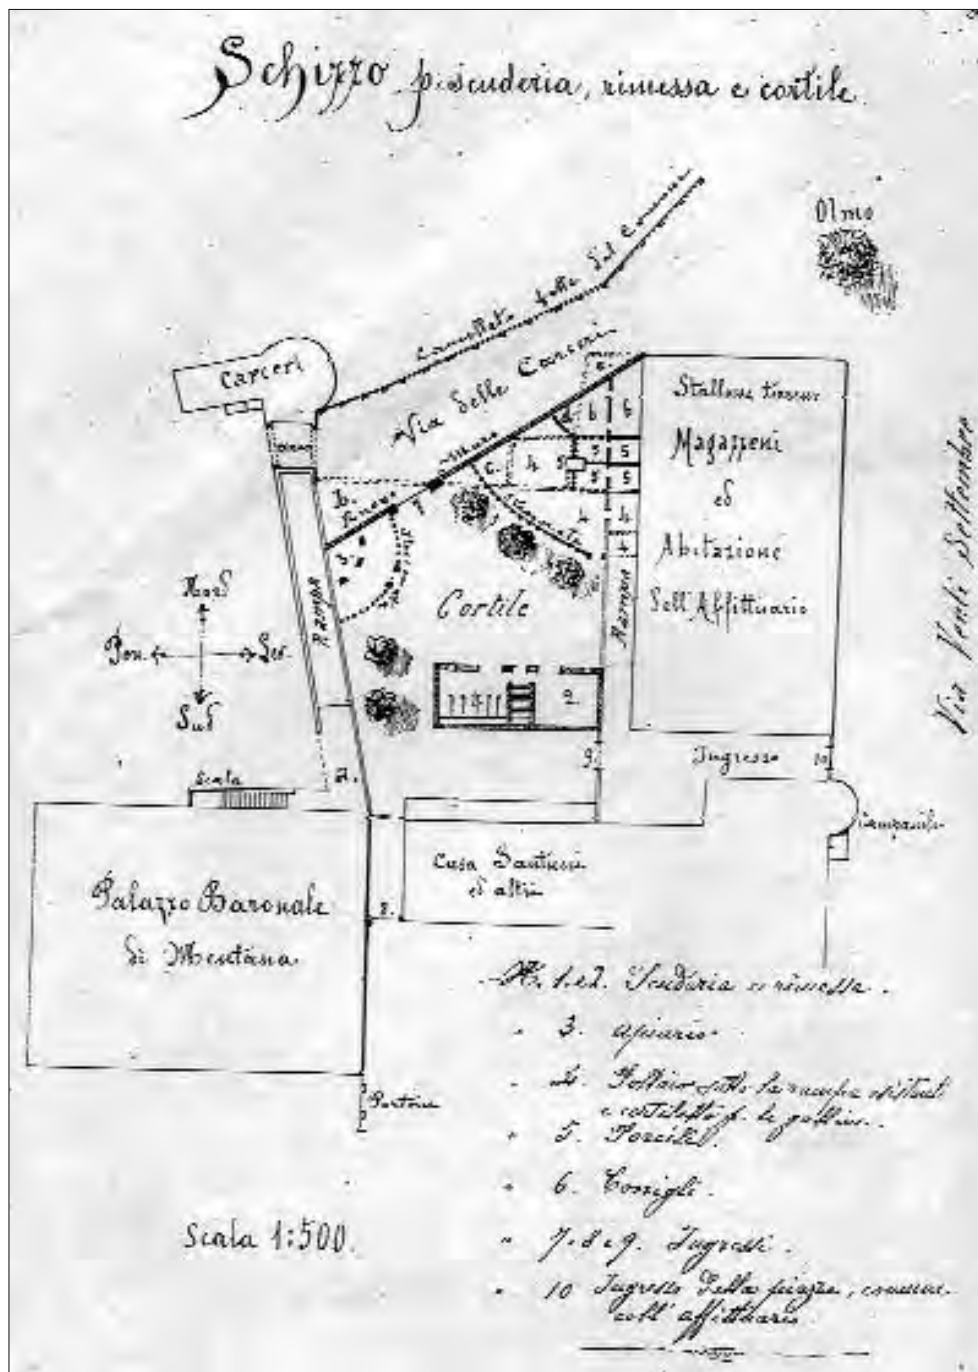 Schizzo p. scuderia, rimessa e cortile.
Olmo
Cancellata fatta dal Comune
Carceri
Via delle Carceri
Muro
Stallone terreno
Magazzeni
ed
Abitazione
dell'Affittuario
Via Venti Settembre
b.
Nuovo
7
c.
a.
d.
6
6
4
5
5
5
5
5
4
4
4
3.
Rampa
Cortile
Rampa
Nord
Pon.
Lev.
Sud
1
2.
9.
Ingresso
10
Scala
a.
Campanile
Casa Santucci
ed altri
8.
Palazzo Baronale
di Mentana
Portone
N. 1. e 2. Scuderia e rimessa.
" 3. apiario.
" 4. Pollaio sotto la rampa esistente
e cortiletto p. le galline.
" 5. Porcili.
" 6. Conigli.
" 7. 8. e 9. Ingressi.
" 10 Ingresso dalla piazza, comune
coll' affittuario.
Scala 1:500.